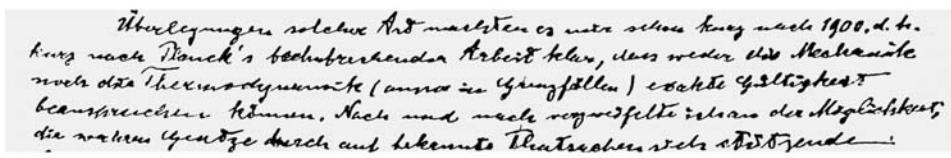 Überlegungen solcher Art machten es mir schon kurz nach 1900, d. h.
kurz nach Planck's bahnbrechender Arbeit klar, dass weder die Mechanik
noch die Thermodynamik (ausser in Grenzfällen) exakte Gültigkeit
beanspruchen können. Nach und nach verzweifelte ich an der Möglichkeit,
die wahren Gesetze durch auf bekannte Thatsachen sich stützende